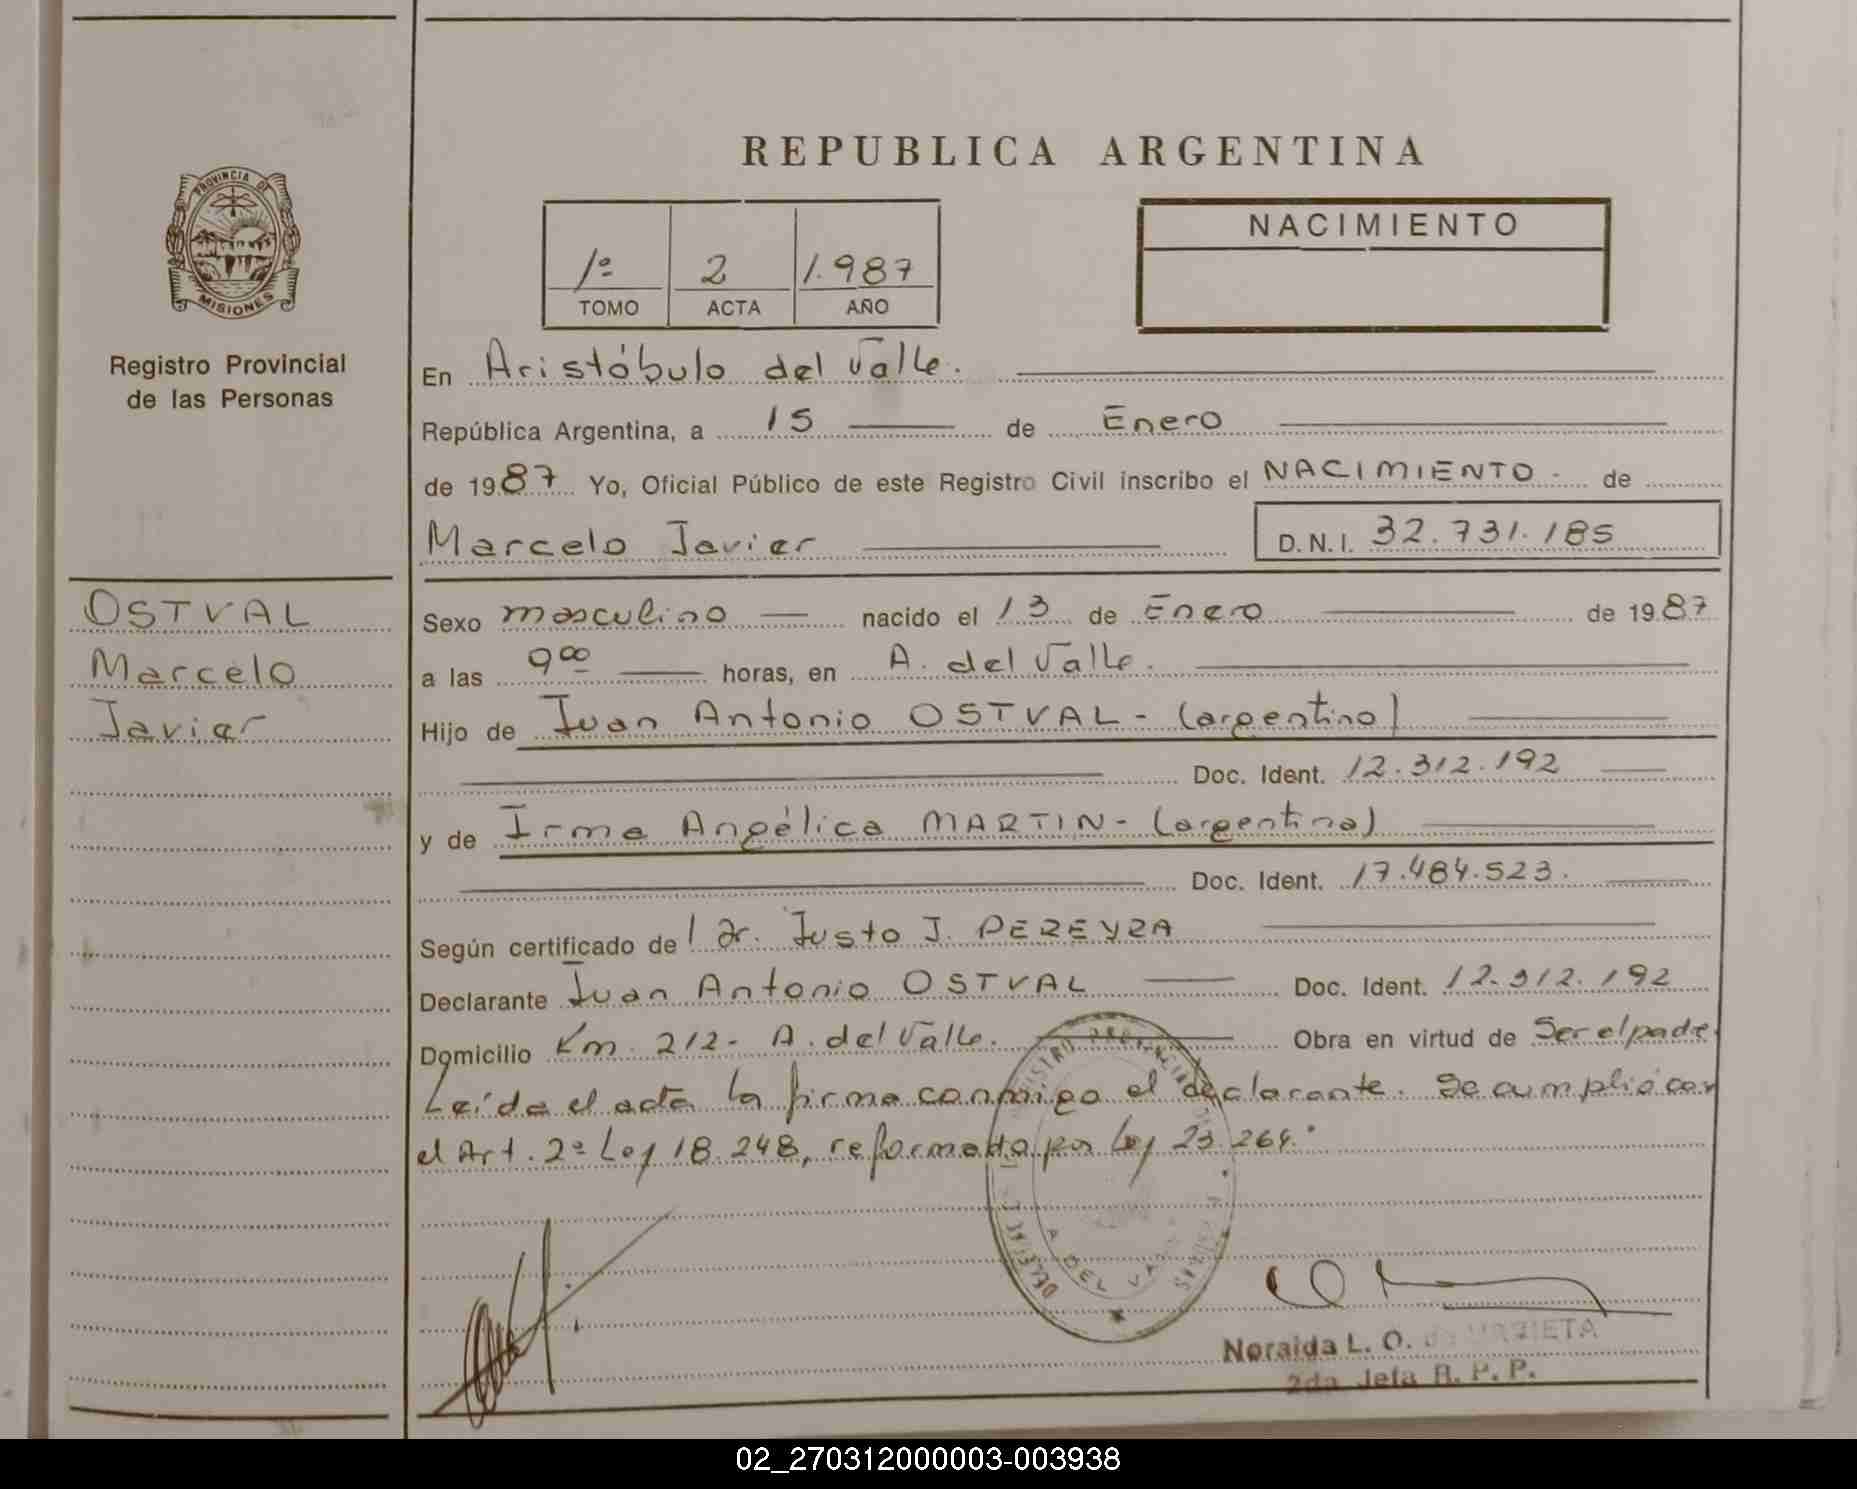 REPUBLICA ARGENTINA
PROVINCIA DE
MISIONES
Registro Provincial
de las Personas
1º 2 1.987
TOMO ACTA AÑO
NACIMIENTO
En Aristóbulo del Valle.
República Argentina, a 15 de Enero
de 1987 Yo, Oficial Público de este Registro Civil inscribo el NACIMIENTO - de
Marcelo Javier D.N.I. 32.731.185
OSTVAL
Marcelo
Javier
Sexo masculino nacido el 13 de Enero de 1987
a las 9 00 horas, en A. del Valle.
Hijo de Juan Antonio OSTVAL - (argentino)
Doc. Ident. 12.312.192
y de Irma Angélica MARTIN - (argentina)
Doc. Ident. 17.484.523.
Según certificado de l Dr. Justo J. PEREYRA
Declarante Juan Antonio OSTVAL Doc. Ident. 12.312.192
Domicilio Km. 212- A. del Valle. Obra en virtud de Ser el padre.
Leída el acta la firma conmigo el declarante. Se cumplió con
el Art. 2º Ley 18.248, reformado por Ley 23.264.
REGISTRO PROVINCIAL
A. DEL VALLE
MISIONES
Noralda L. O. de
2da. Jefa R. P. P.
02_270312000003-003938